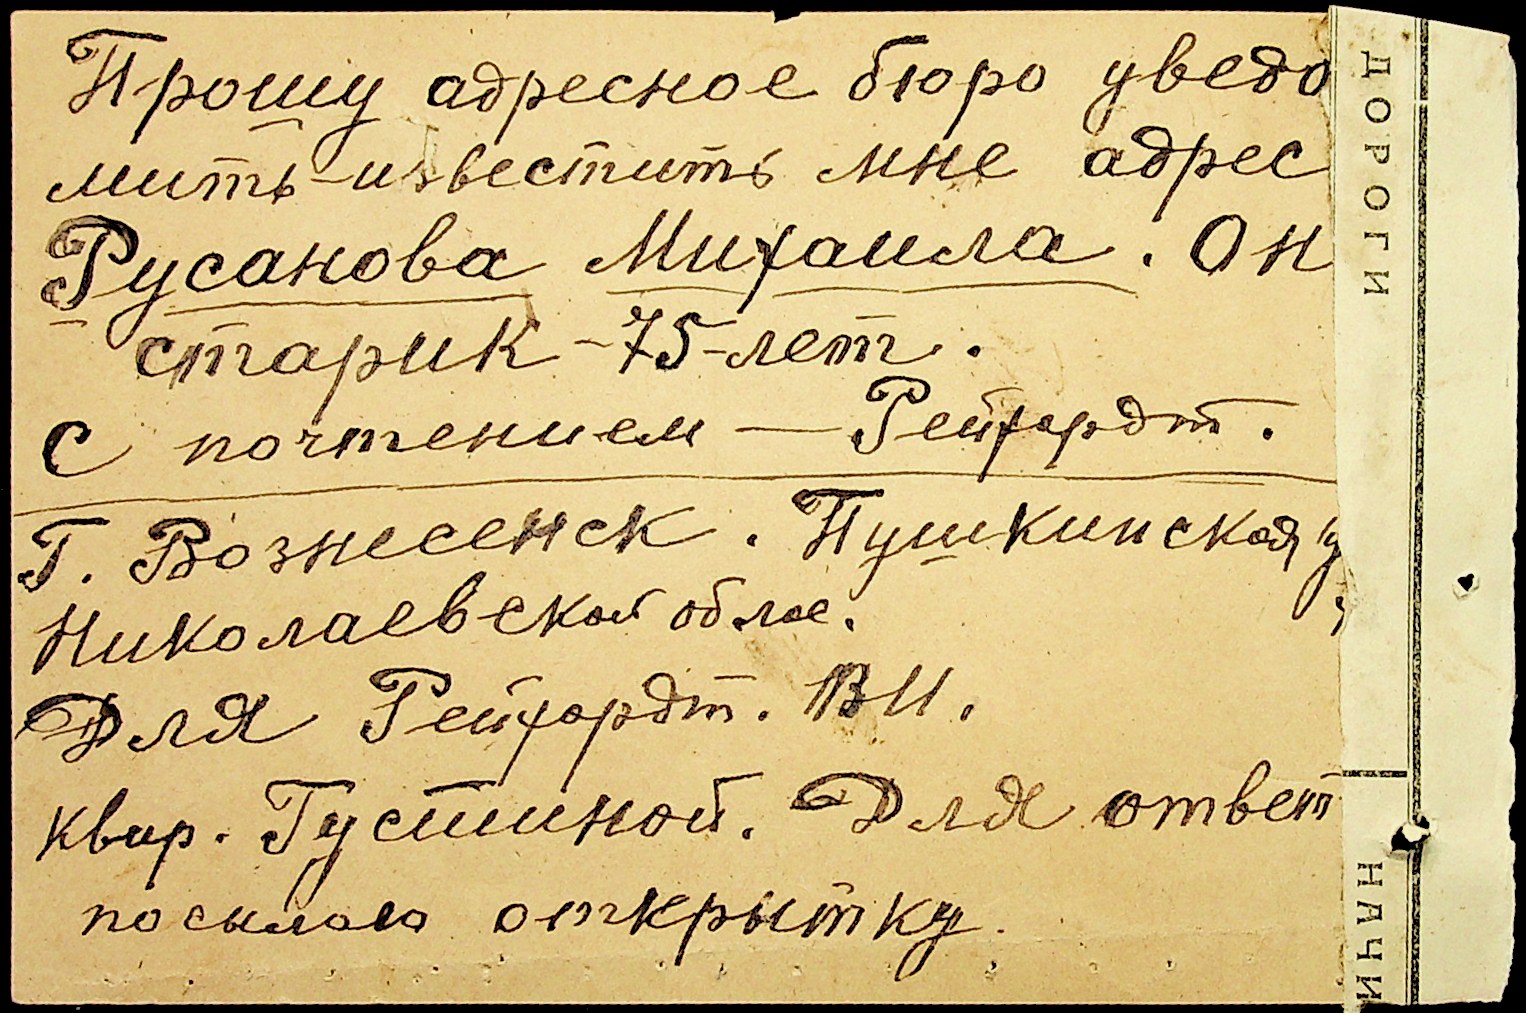 Прошу адресное бюро уведо
мить-известить мне адрес
Русанова Михаила. Он
старик -75-лет.
С почтением — Рейхардт.
Г. Вознесенск. Пушкинская у
Николаевской облас.
Для Рейхардт. В И.
квар. Густиной. Для ответ
посылаю открытку.
ДОРОГИ
НАЧИ